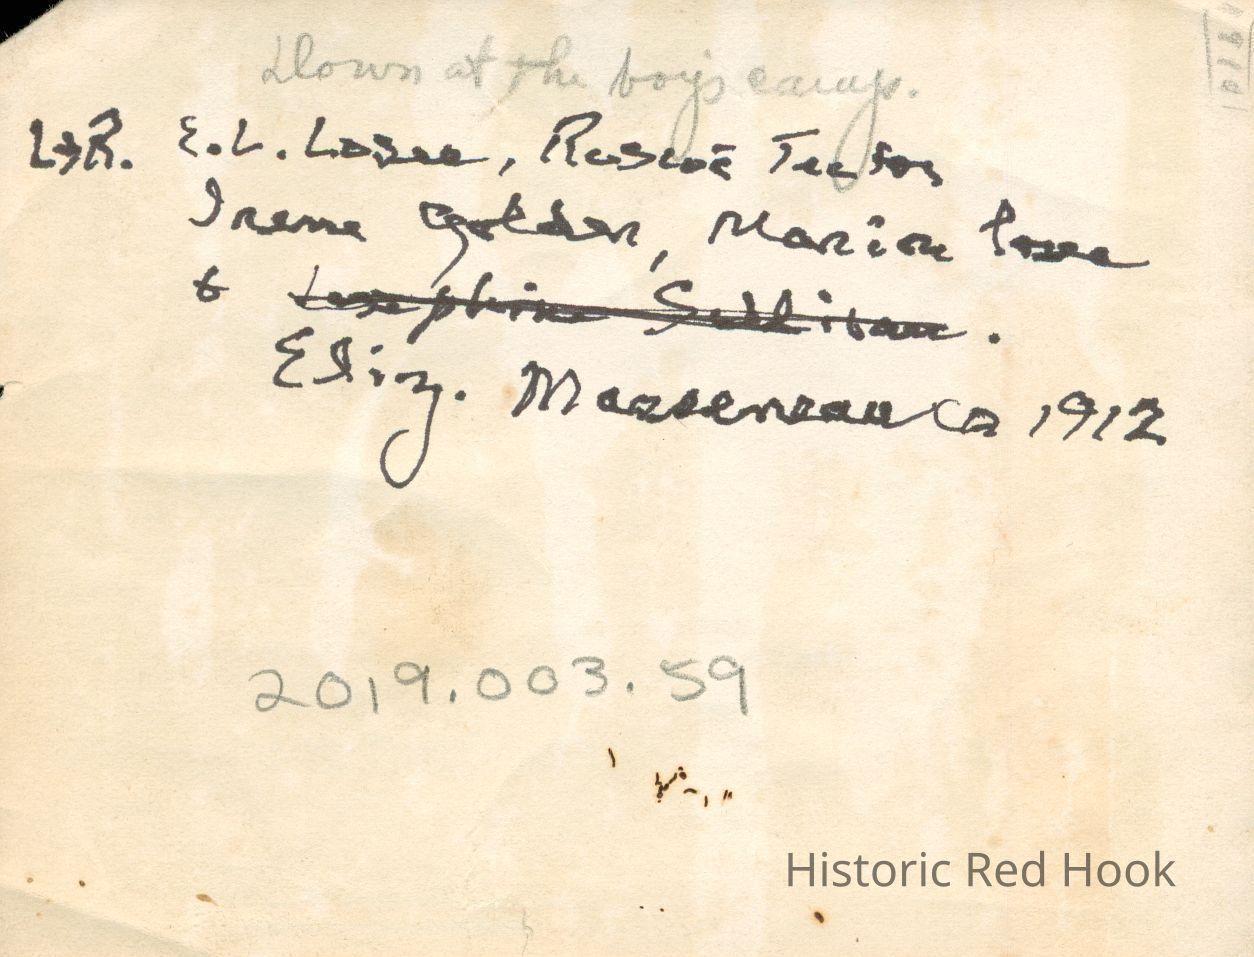 Down at the boys camp.
L→R. E.L. Losee, Roscoe
Irene Golden, Marion Losee
& Josephine Sullivan.
Eliz. Masseneau ca 1912
2019.003.59
Historic Red Hook